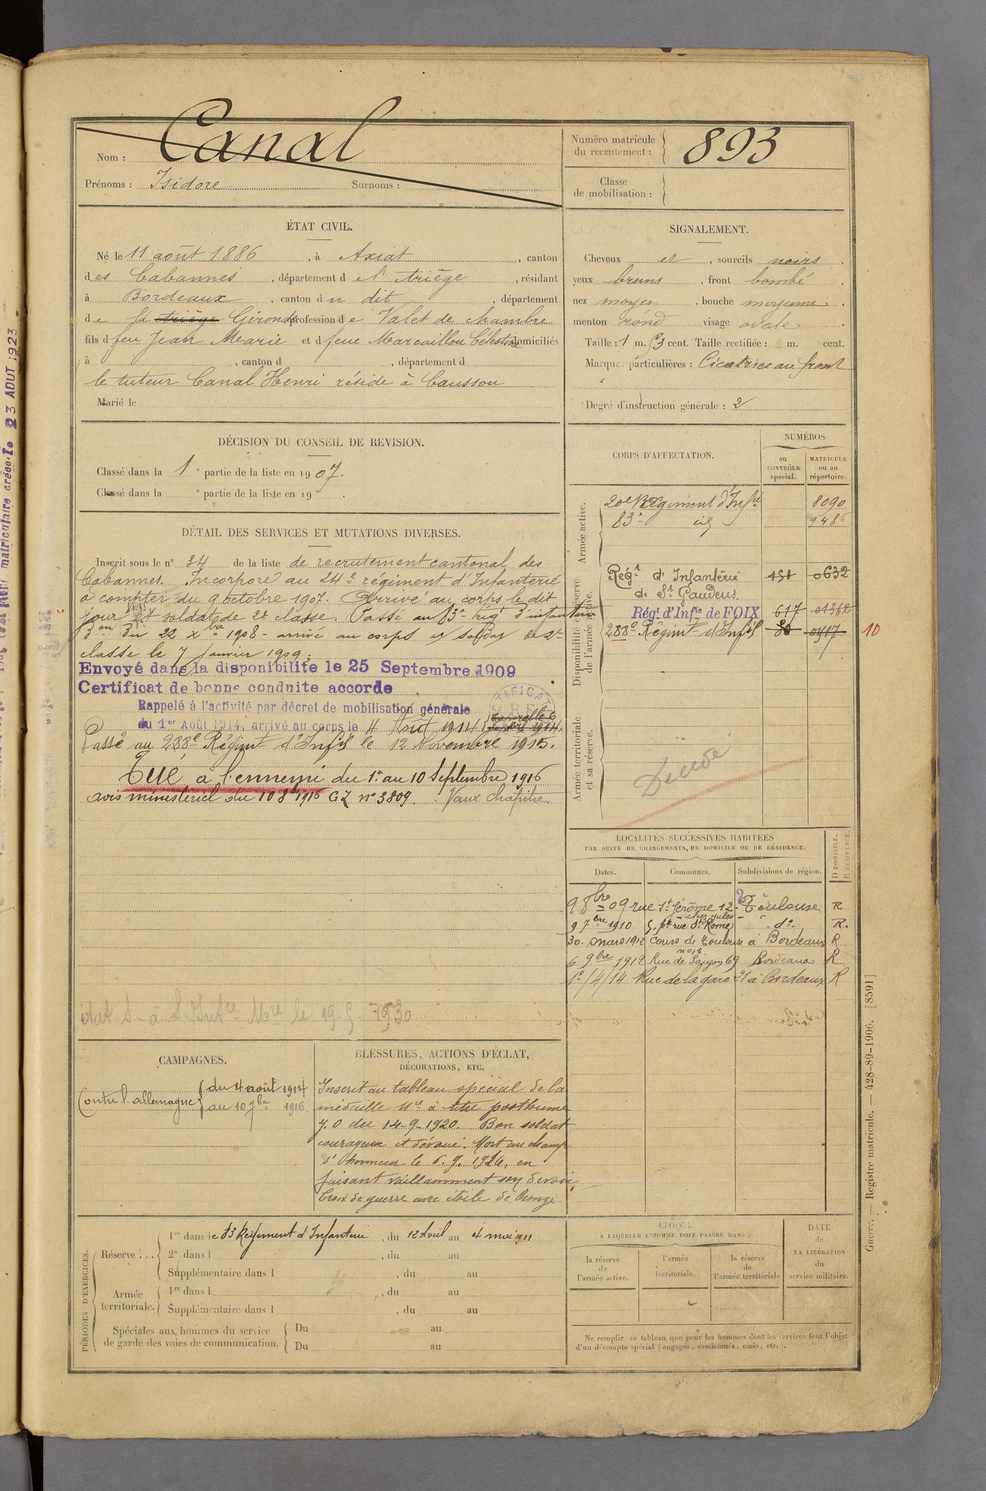 Nom : Canal
Prénoms : Isidore Surnoms :
Numéro matricule du recrutement : 893
Classe de mobilisation :
ÉTAT CIVIL.
Né le 11 août 1886, à Axiat, canton
des Cabannes, département de l'Ariège, résidant
à Bordeaux, canton du dit, département
de la Ariège Gironde profession de Valet de chambre
fils de feu Jean Marie et de feue Marcaillou Célestine domiciliés
à , canton d , département d
le tuteur Canal Henri réside à Caussou
Marié le
SIGNALEMENT.
Cheveux et , sourcils noirs .
yeux bruns , front bombé .
nez moyen , bouche moyenne .
menton rond visage ovale .
Taille : 1 m. 63 cent. Taille rectifiée : m. cent.
Marques particulières : Cicatrice au front
Degré d'instruction générale : 2
DÉCISION DU CONSEIL DE REVISION.
Classé dans la 1e partie de la liste en 1907.
Classé dans la e partie de la liste en 19 .
DÉTAIL DES SERVICES ET MUTATIONS DIVERSES.
Inscrit sous le n° 34 de la liste de recrutement cantonal des
Cabannes. Incorporé au 24e régiment d'Infanterie
à compter du 9 octobre 1907. Arrivé au corps le dit
jour et soldat de 2e classe. Passé au 83e rég d'infanterie
du 22 Xbre 1908 - arrivé au corps et soldat de 2e
classe le 7 janvier 1909.
Envoyé dans la disponibilité le 25 Septembre 1909
Certificat de bonne conduite accordé
Rappelé à l'activité par décret de mobilisation générale
du 1er Août 1914, arrivé au corps le 4 Août 1914
Passé au 288e Régimt d'Infie le 12 Novembre 1915.
Tué à l'ennemi du 1er au 10 Septembre 1916
avis ministériel du 10 8bre 1916 GZ n° 3809. Vaux Chapitre
19 - 5 - 1930
CORPS D'AFFECTATION.
NUMÉROS
au CONTRÔLE spécial.
MATRICULE ou au répertoire.
Armée active.
Régiment d'Infie 8090
83e id 9486
Disponibilité et réserve de l'armée active.
Régt d'Infanterie de St Gaudens 151 0632
Rég. d'Infie de FOIX 617
288e Régimt d'Infie 30 10
Armée territoriale et sa réserve.
Décédé
LOCALITÉS SUCCESSIVES HABITÉES
PAR SUITE DE CHANGEMENTS DE DOMICILE OU DE RÉSIDENCE.
Dates. Communes. Subdivisions de région. DOMICILE. RÉSIDENCE.
9 8bre 09 rue St Jérôme 12 - Toulouse R
9 7bre 1910 rue St Rome do R.
30 mars 1912 cours de Toulouse à Bordeaux R
6 9bre 1912 Rue de 69 Bordeaux R
1er/4/14 Rue de la gare 21 à Bordeaux R
CAMPAGNES.
Contre l'allemagne du 4 août 1914
au 10 7bre 1916
BLESSURES, ACTIONS D'ÉCLAT,
DÉCORATIONS, ETC.
Inscrit au tableau spécial de la
médaille Mre à titre posthume
J.O du 14-9-1920. Bon soldat
courageux et dévoué. Mort au champ
d'honneur le 6.9.1916, en
faisant vaillamment son devoir.
Croix de guerre avec étoile de bronze.
PÉRIODES D'EXERCICES.
Réserve : 1re dans le 83 Régiment d'Infanterie, du 12 Avril au 4 mai 1911
2e dans l , du au
Supplémentaire dans l , du au
Armée territoriale. 1re dans l , du au
Supplémentaire dans l , du au
Spéciales aux hommes du service Du au
de garde des voies de communication. Du au
ÉPOQUE
À LAQUELLE L'HOMME DOIT PASSER DANS
la réserve de l'armée active.
l'armée territoriale.
la réserve de l'armée territoriale
DATE de LA LIBÉRATION du service militaire.
Ne remplir ce tableau que pour les hommes dont les services font l'objet
d'un décompte spécial (engagés, condamnés, omis, etc.).
Guerre. — Registre matricule. — 428-89-1906. [8591]
matriculaire créée le 23 AOUT 1923